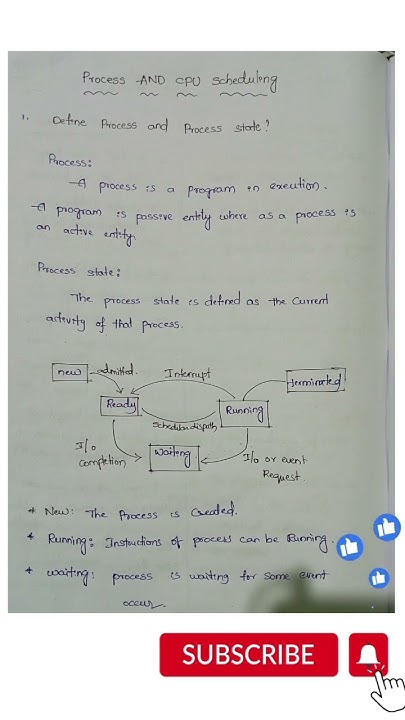 Process -AND CPU scheduling
1. Define Process and Process state?
Process:
-A process is a program in exeution.
-A program is passive entity where as a process is
an active entity.
Process state:
The process state is defined as the current
activity of that process.
new
admitted.
Interrupt
terminated
Ready
Running
Scheduler dispath
I/o
completion
waiting
I/o or event
Request.
* New: The Process is Created.
* Running: Instructions of process can be Running.
* waiting: process is waiting for some event
occur.
SUBSCRIBE